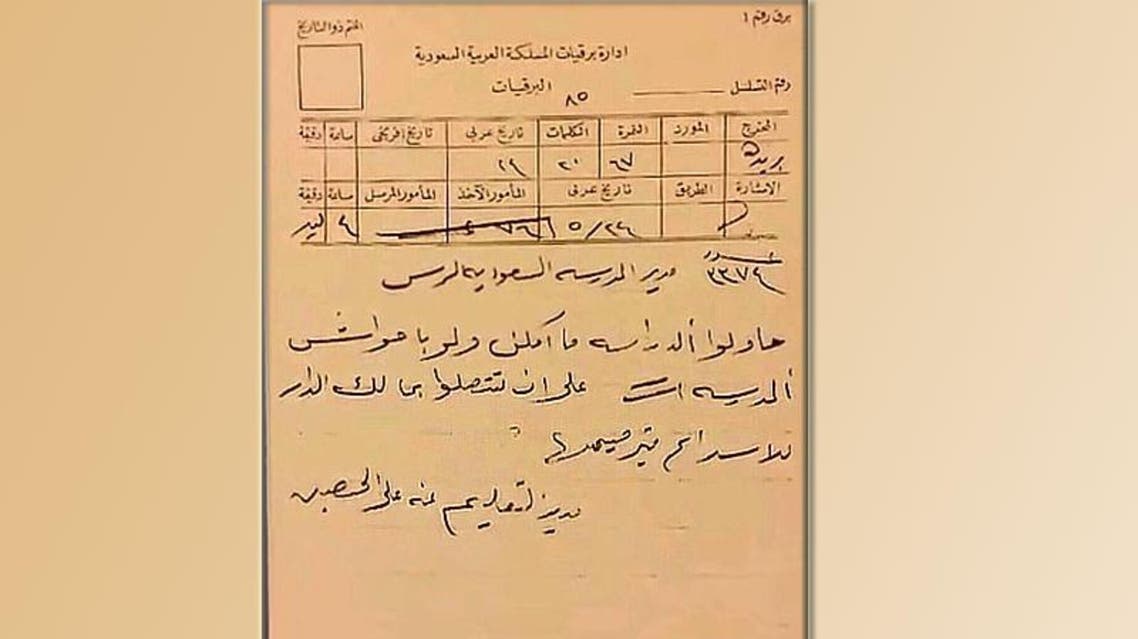 برق رقم ١
الختم ذو التاريخ
ادارة برقيات المملكة العربية السعودية
رقم التسلسل
البرقيات
٨٥
المخرج المورد النمرة الكلمات تاريخ عربي تاريخ افرنجي ساعة دقيقة
بريده ٦٧ ٢٠ ٢٩
الاشارة الطريق تاريخ عربي المأمور الآخذ المأمور المرسل ساعة دقيقة
٥/٢٤ ٧٦ ٤
٣٣٧٤ مدير المدرسه السعوديه بالرس
حاولوا الدراسه ما امكن ولو باحواش
المدرسه على ان تتصلوا بمالك الدار
للاسراع بترميمها
مدير التعاليم عنه علي الحصين